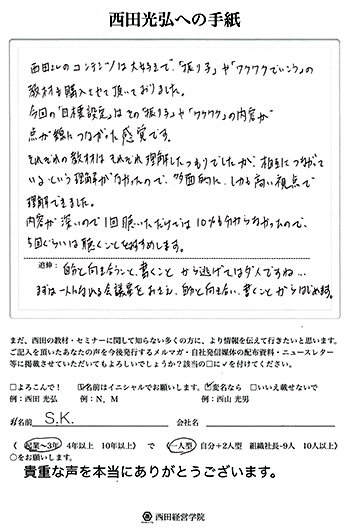 西田光弘への手紙
西田さんのコンテンツは大好きで、「振り子」や「ワクワクでいこう」の
教材も購入させて頂いておりました。
今回の「目標設定」はその「振り子」や「ワクワク」の内容が
点が線につながった感覚です。
それぞれの教材はそれぞれ理解したつもりでしたが、相互につながって
いるという理解がなかったので、多面的に、しかも高い視点で
理解できました。
内容が深いので1回聴いただけでは10%も分からなかったので、
5回ぐらいは聴くことをおすすめします。
追伸: 自分と向き合うこと、書くことから逃げてはダメですね…
まずは一人になれる会議室をおさえ、自分と向き合い、書くことからはじめます。
まだ、西田の教材・セミナーに関して知らない多くの方に、より情報を伝えて行きたいと思います。
ご記入を頂いたあなたの声を今後発行するメルマガ・自社発信媒体の配布資料・ニュースレター
等に掲載させていただいてもよろしいでしょうか?該当の□に✓を付けてください。
□よろこんで! ☑名前はイニシャルでお願いします。 ☑変名なら □いいえ載せないで
例:西田 光弘 例:N.M 例:西山 光男
お名前 S.K. 会社名
《 起業〜3年 4年以上 10年以上》 で 《一人型 自分+2人型 組織社長-9人 10人以上》
○をお願いします。
貴重な声を本当にありがとうございます。
西田経営学院